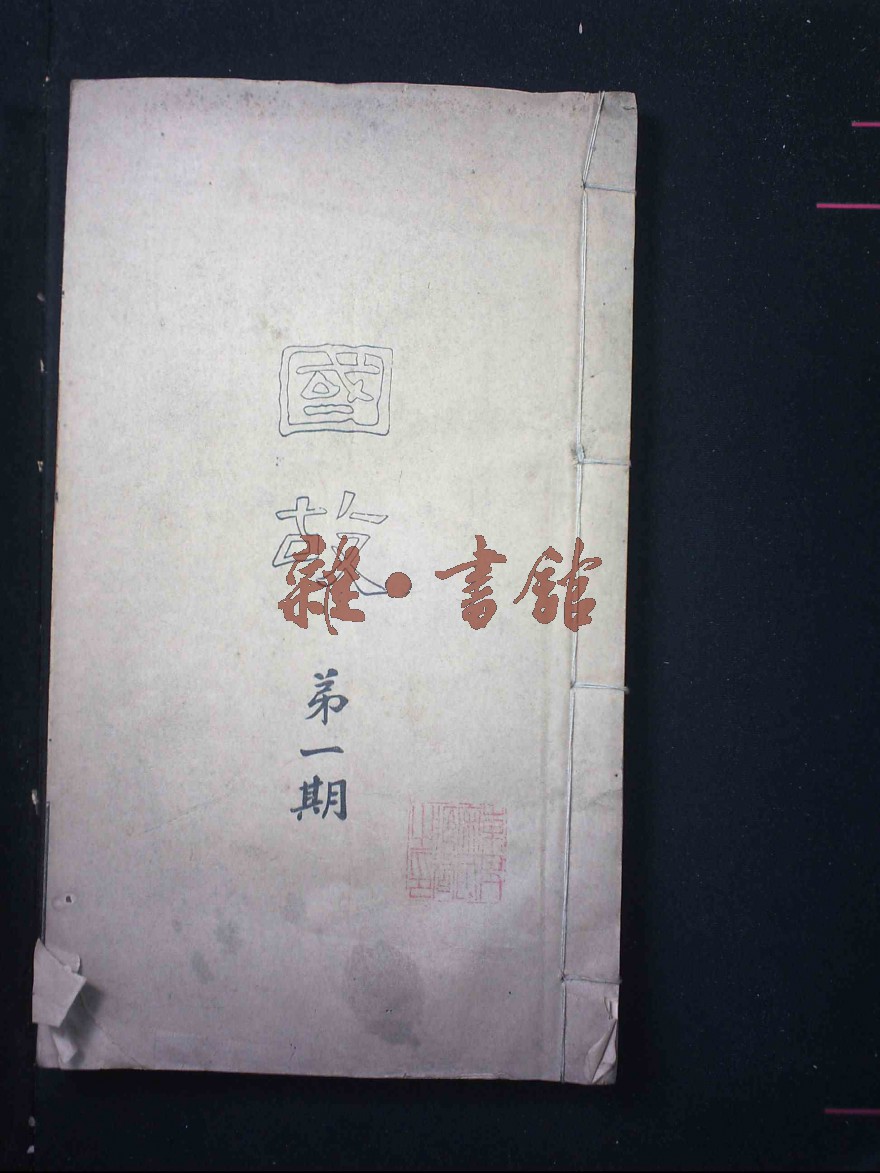 國
故
第一期
雜·書館